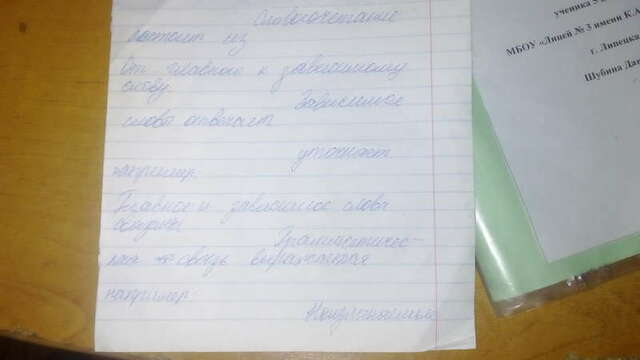 Словосочетание
состоит из
От главного к зависимому
слову.
Зависимое
слово отвечает
уточняет
например
Главное и зависимое слова
связаны
Грамматичес-
кая связь выражается
например
Неизменяемые
ученика 5
МБОУ «Лицей № 3 имени К.А
г. Липецка
Шубина Дан